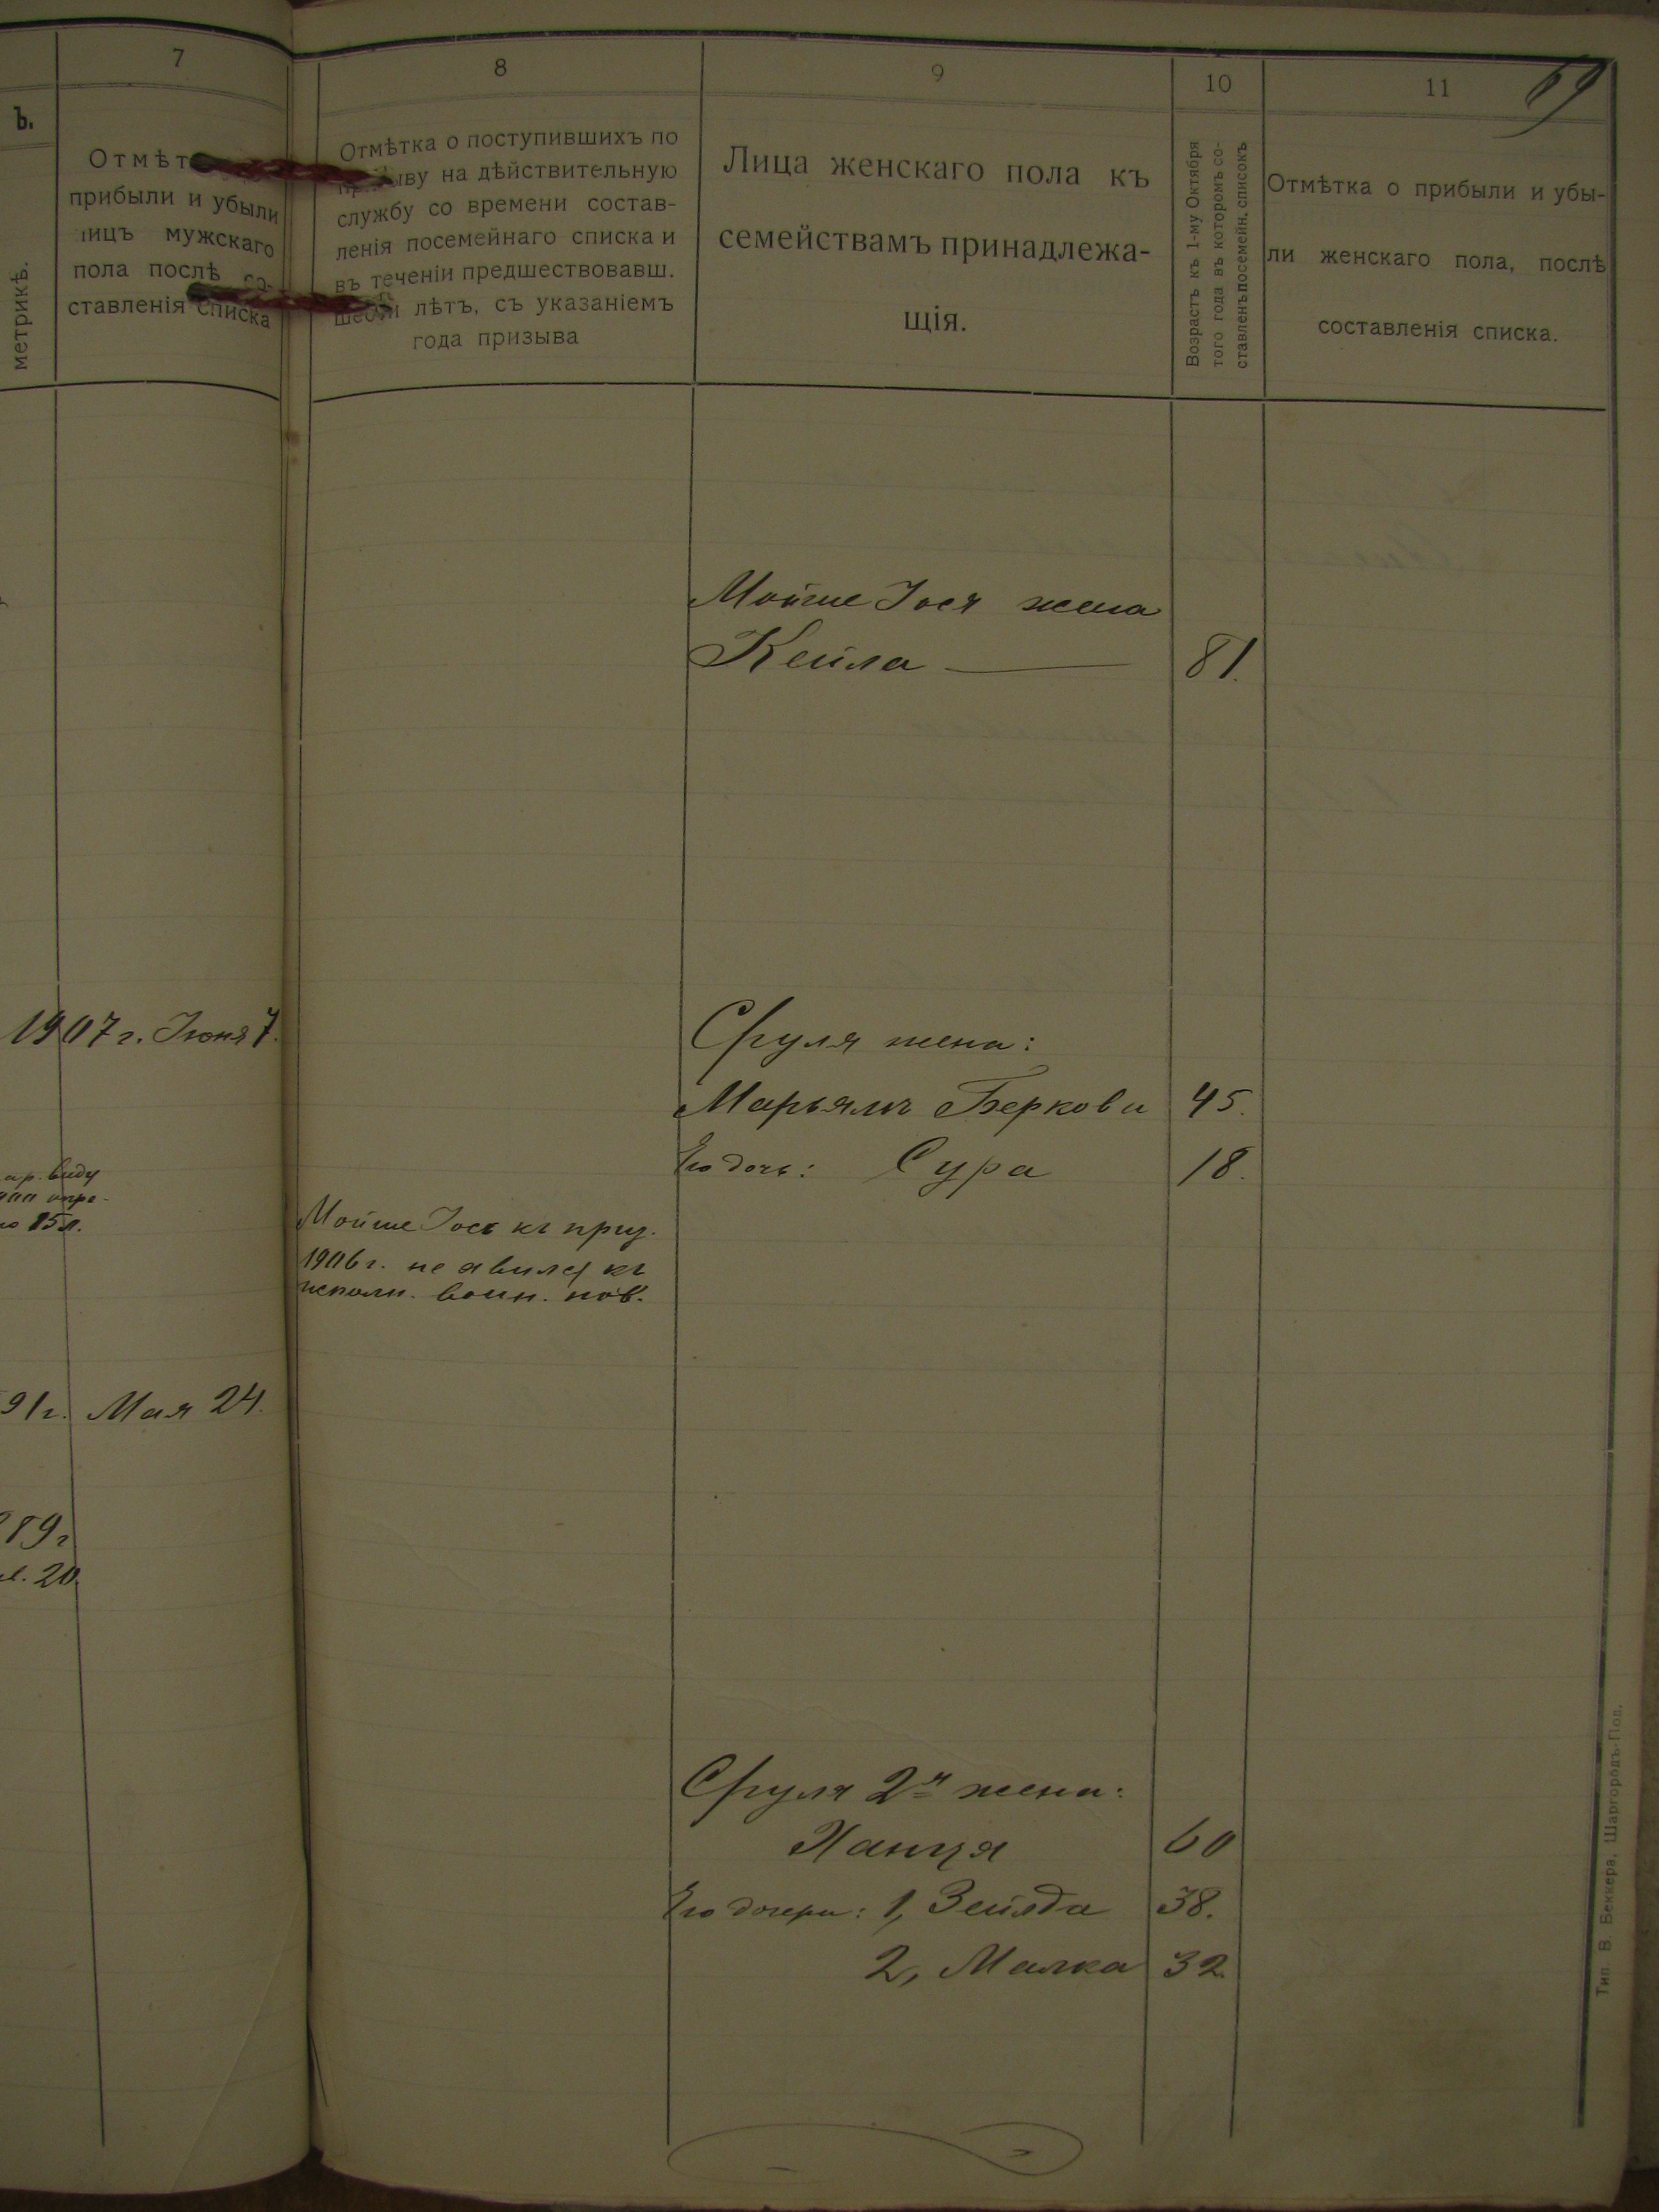 7
8
9
10
11
69
ъ.
метрикѣ.
Отмѣт
прибыли и убыли
лицъ мужскаго
пола послѣ со-
ставленія списка
Отмѣтка о поступившихъ по
призыву на дѣйствительную
службу со времени состав-
ленія посемейнаго списка и
въ теченіи предшествовавш.
шести лѣтъ, съ указаніемъ
года призыва
Лица женскаго пола къ
семействамъ принадлежа-
щія.
Возрастъ къ 1-му Октября
того года въ которомъ со-
ставленъ посемейн. списокъ
Отмѣтка о прибыли и убы-
ли женскаго пола, послѣ
составленія списка.
Мойше Іося жена
Кейла 81.
1907 г. Іюня 7.
Сруля жена:
Марьямъ Беркови 45.
Его дочь: Сура 18.
виду
15 л.
Мойше Іось къ приз.
1906 г. не явился къ
исполн. воин. пов.
91 г. Мая 24.
89 г
20.
Сруля 2я жена:
Ханця 60
Его дочери: 1, Зейлда 38.
2, Малка 32
Тип. В. Беккера, Шаргородъ-Под.